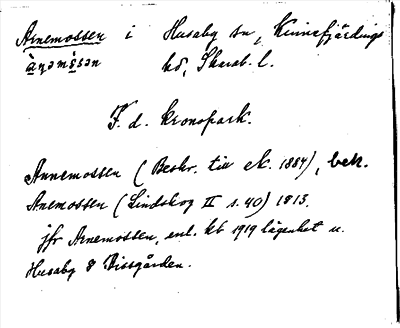 Arnemossen i Husaby sn, Kinnefjärdings
àṇəms̀sən hd, Skarab. l.
F. d. kronopark.
Annemossen (Beskr. till ek. 1884), bek.
Anemossen (Lindskog II s. 40) 1813.
jfr Arnemossen, enl. kb 1919 lägenhet u.
Husaby 8 Bissgården.